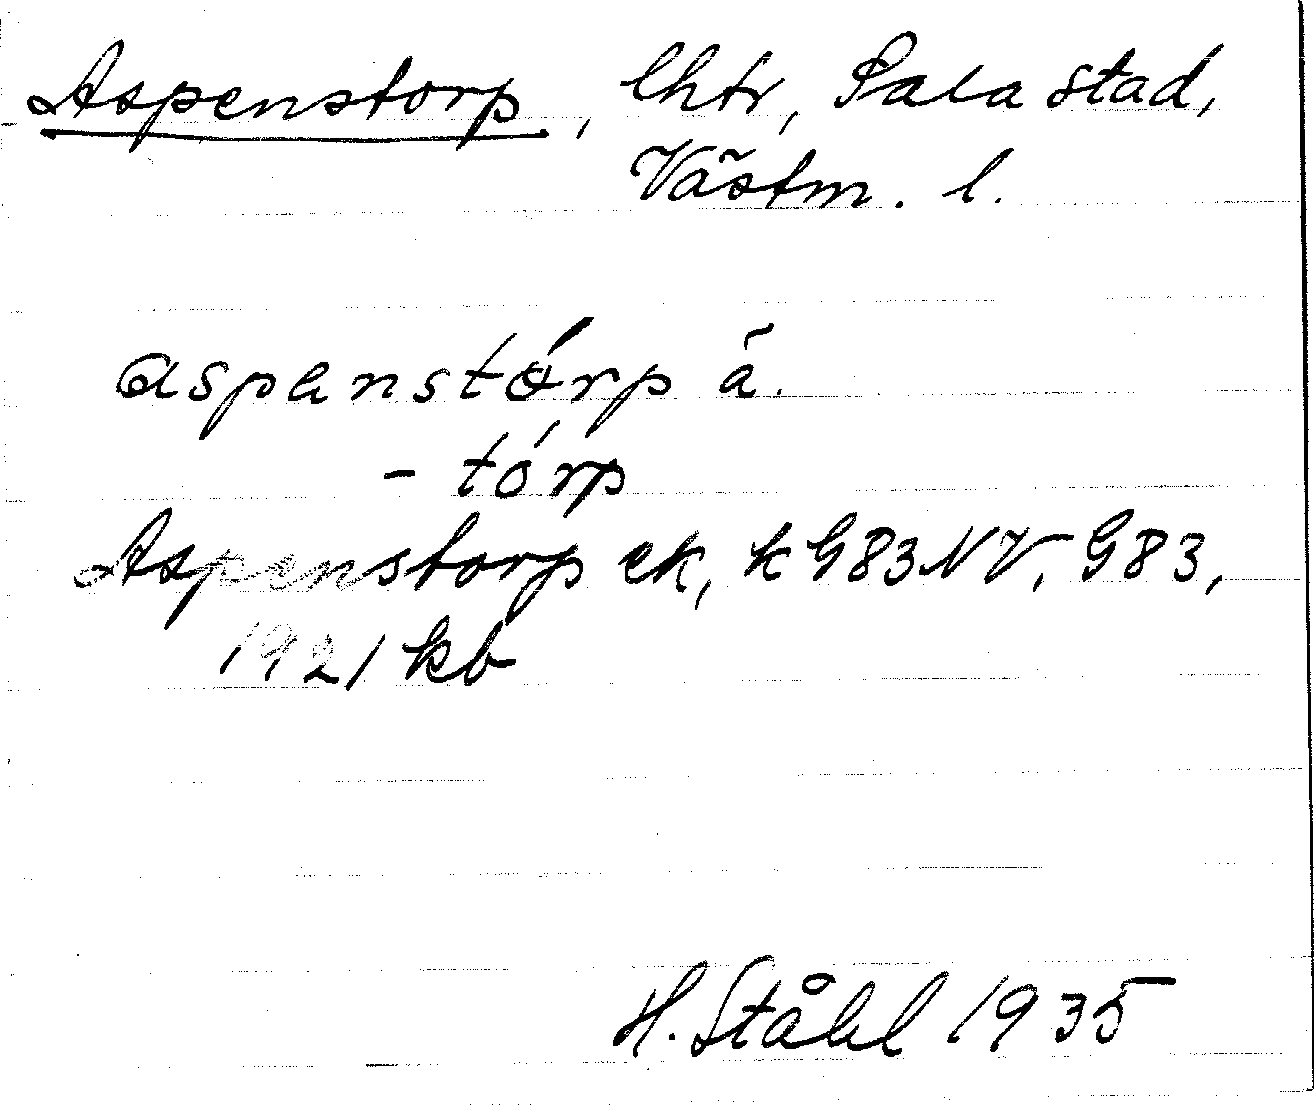 Aspenstorp, lhtr, Sala stad,
Västm. l.
aspanstórp ä.
- tórp
Aspenstorp ek, k G83NV, G83,
1921 kb
H. Ståhl 1935